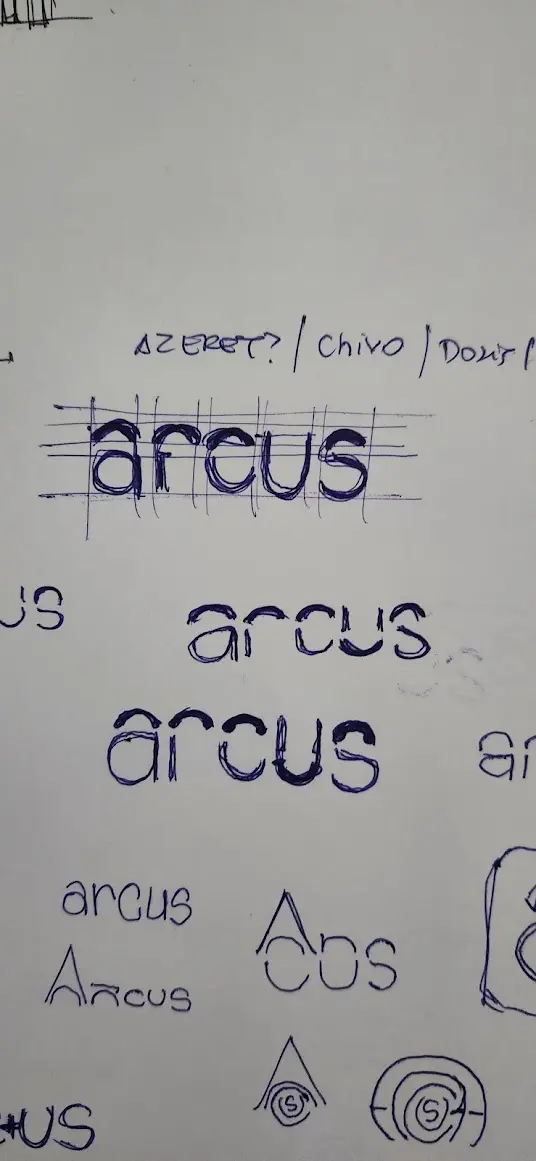 AZERET? / Chivo /
arcus
us
arcus
arcus
arcus
Arcus
S
S
us